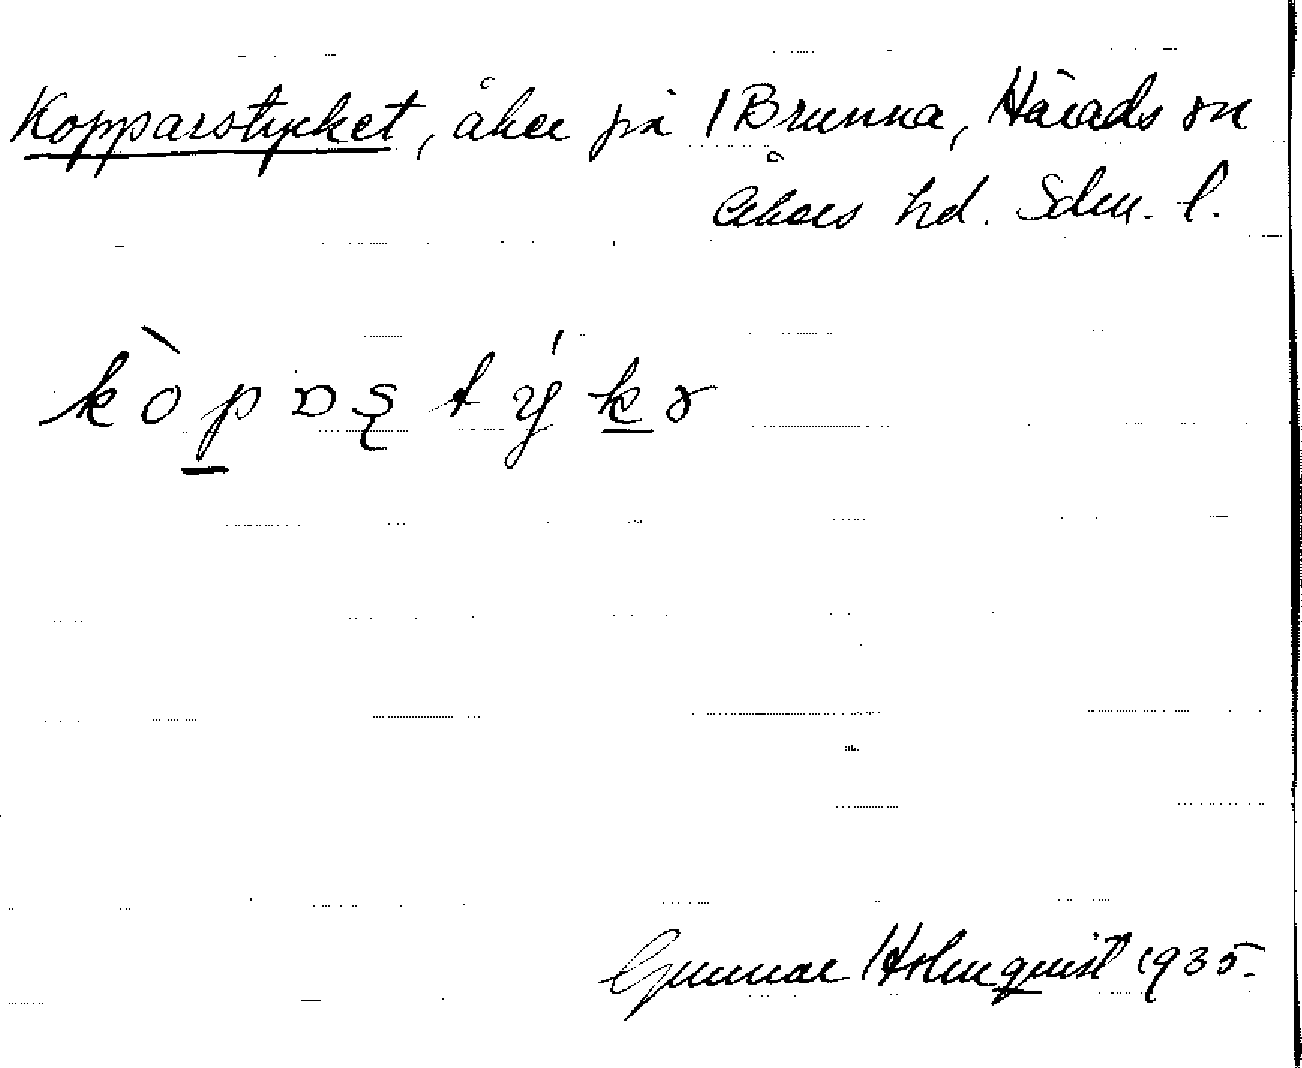 Kopparstycket, åker på Brunna, Härads sn
Åkers hd. Sdm. l.
kòpaștýkə
Gunnar Holmquist 1935.